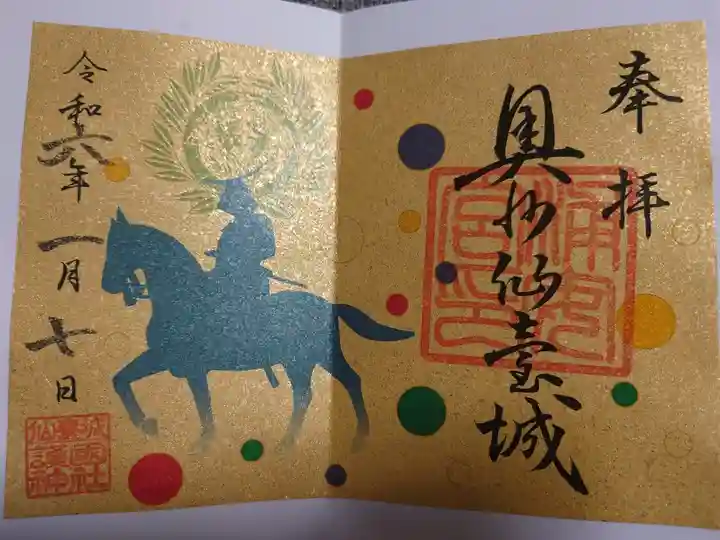 奉拝
奥州仙臺城
令和六年
一月七日